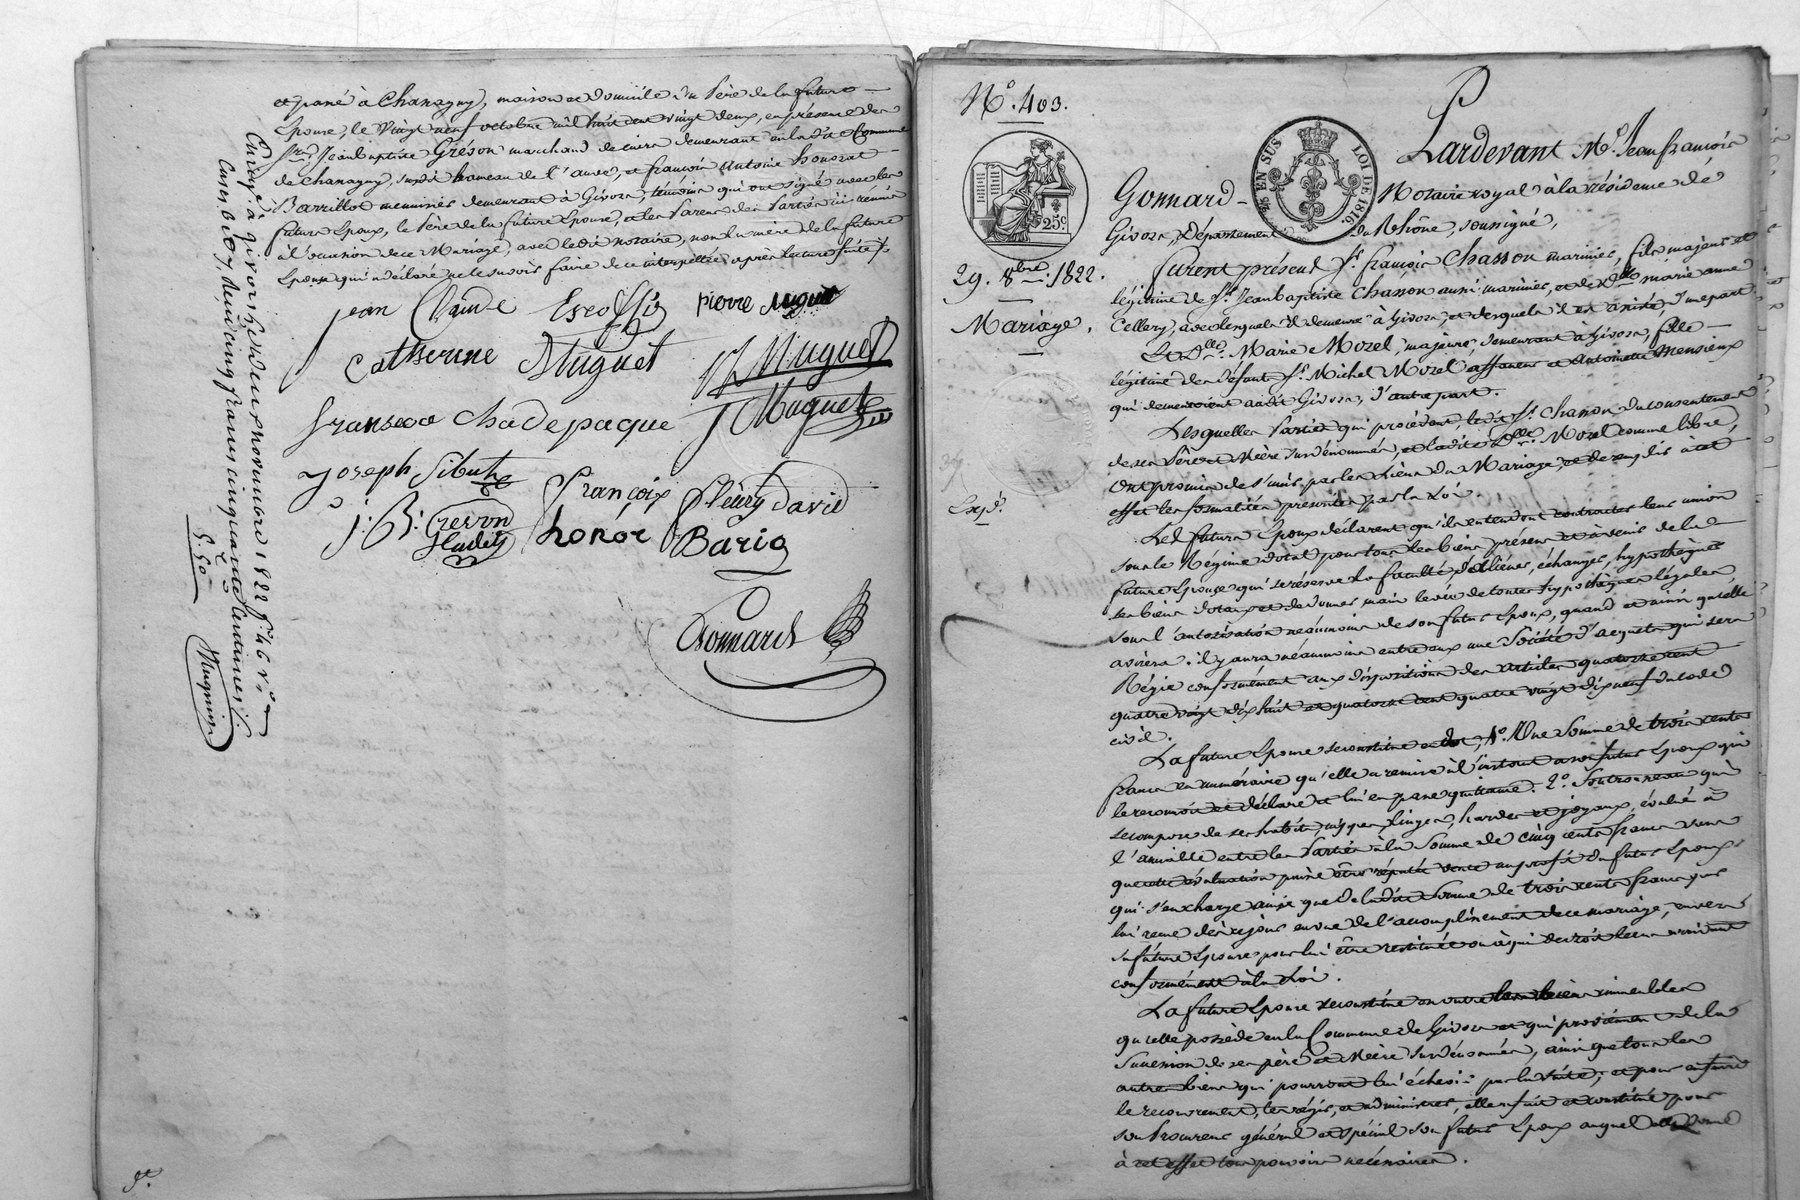 et passé à Chanagny, maison et domicile du Père de la future
Epouse, le vingt neuf octobre mil huit cent vingt deux, en présence des
Srs Jean baptiste Grévon marchand de cuirs demeurant en la dite Commune
de Chanagny, susdit hameau de l'
et françois Antoine honorat
Barrillot menuisier demeurant à Givors, témoins qui ont signé avec les
futurs Epoux, le Père de la future Epouse, et les Parens des Parties ici réunis
à l'occasion de ce Mariage, avec le dit notaire, non la mère de la future
Epouse qui a déclaré ne le savoir faire de ce interpellée après lecture faite /.
jean Claude Escoffié pierre Muguet
Catherine Muguet Muguet
fransoa Chadepaque J Muguet
joseph Sibut
françoix fleury David
j: B: Grevon
honor Bario
Gonnard
Enreg.é à givors le deux novembre 1822 f.o 46 r.o
cases 6 et 7, Reçu cinq francs cinquante centimes /.
5.50
Mugnier
N.o 403.
25 EN SUS LOI DE 1816.
25c
29. 8bre 1822.
Mariage.
Exp.é
Pardevant M.e Jean françois
Gonnard Notaire royal à la résidence de
Givors, Département du Rhône, soussigné,
furent présens Sr. françois Chasson marinier, fils majeur et
légitime de Sr. Jean baptiste Chasson aussi marinier, et de Dlle marie anne
Cellery, avec lesquels il demeure à Givors, et desquels il est assisté, d'une part.
Et Dlle Marie Mozel, majeure, demeurant à Givors, fille
légitime des défunts Sr. Michel Mozel, affaneur et Antoinette Mensieux
qui demeuroient audit Givors, d'autre part.
Lesquelles Parties qui procèdent, le dit Sr. Chasson du consentement
de ses Père et Mère susdénommés, et ladite Dlle Mozel comme libre,
ont promis de s'unir par les Liens du Mariage, et de remplir à cet
effet les formalités prescrites par la Loi.
Les futurs Epoux déclarent qu'ils entendent contracter leur union
sous le Régime dotal pour tous les biens présens et à venir de la
future Epouse qui se réserve la faculté d'aliéner, échanger, hypothéquer
ses biens dotaux et de donner main levée de toutes hypothèques légales
sous l'autorisation néanmoins de son futur Epoux, quand et ainsi qu'elle
avisera. il y aura néanmoins entre eux une Société d'acquets qui sera
Régie conformément aux dispositions des articles quatorze cent
quatre vingt dix huit et quatorze cent quatre vingt dix neuf du code
civil.
La future Epouse se constitue en dot, 1.o Une Somme de trois cents
francs en numéraire qu'elle a remise à l'instant à son futur Epoux qui
le reconnoit et déclare et lui en passe quittance. 2.o Son trousseau qui
se compose de ses habits, nippes, linges, hardes et joyaux, évalué à
l'amiable entre les Parties à la Somme de cinq cents francs sans
que cette évaluation puisse être réputée vente au profit du futur Epoux
qui s'en charge ainsi que de la dite Somme de trois cents francs
lui dès ce jour en vue de l'accomplissement de ce mariage, envers
sa future Epouse pour lui être restituée ou à qui de droit le cas arrivant
conformément à la Loi.
La future Epouse se constitue en outre les biens immeubles
qu'elle possède en la Commune de Givors et qui proviennent de la
Succession de ses père et Mère susdénommés, ainsi que tous les
autres biens qui pourront lui échoir par la suite; et pour en faire
le recouvrement, les régir, et administrer, elle a fait et constitué pour
son Procureur général et spécial son futur Epoux auquel elle donne
à cet effet tous pouvoirs nécessaires.